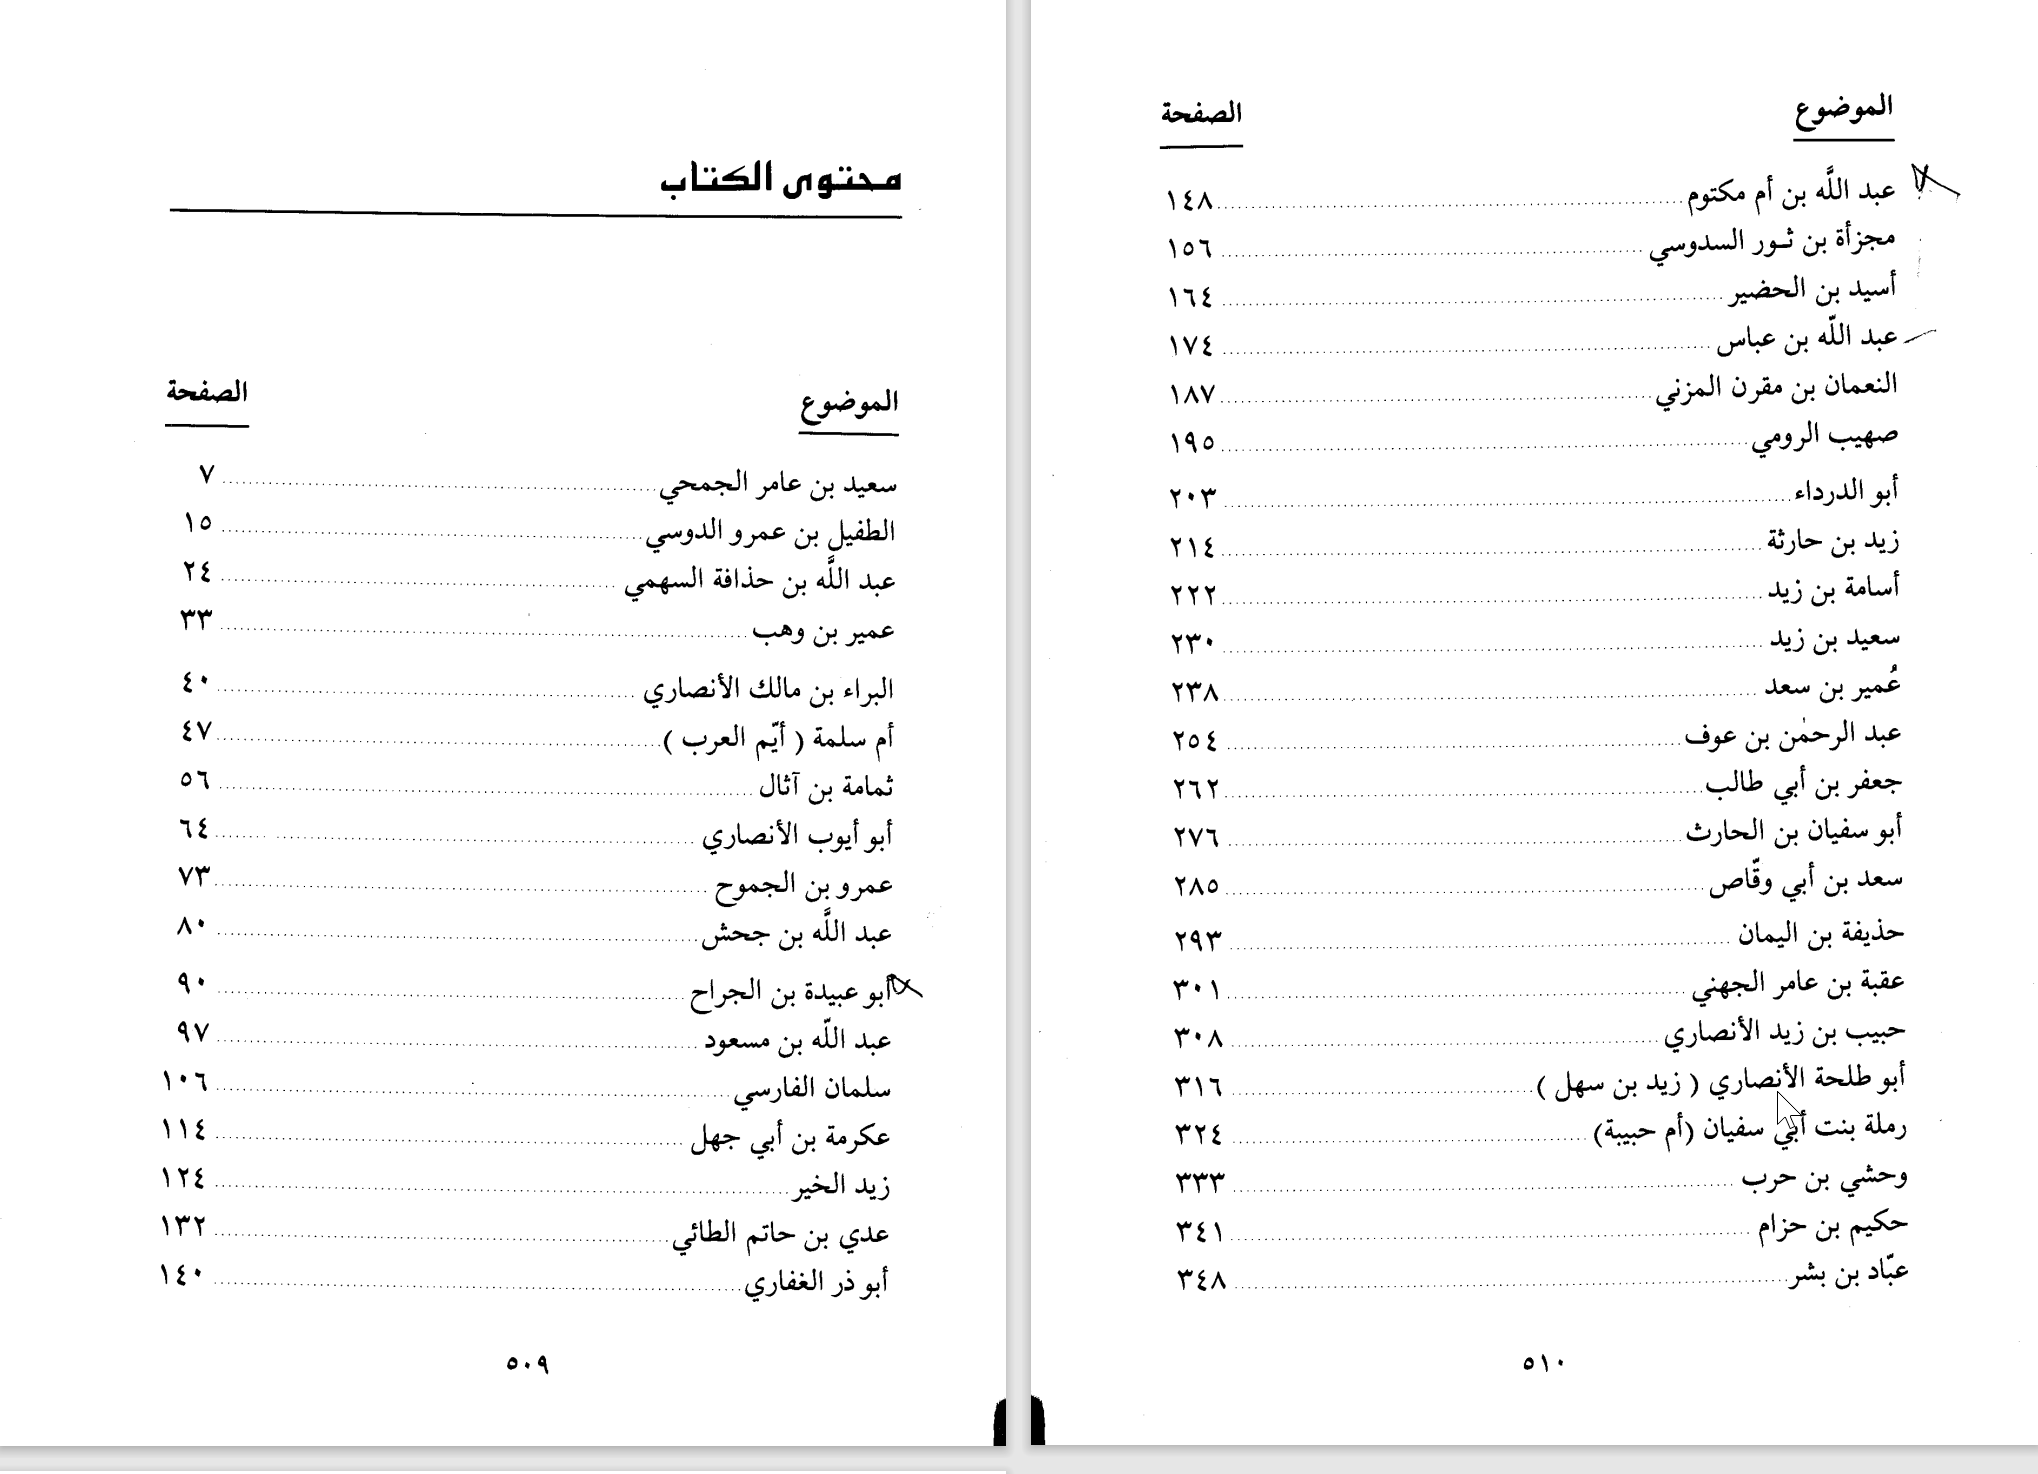 محتوى الكتاب
الموضوع الصفحة
سعيد بن عامر الجمحي ٧
الطفيل بن عمرو الدوسي ١٥
عبد اللَّه بن حذافة السهمي ٢٤
عمير بن وهب ٣٣
البراء بن مالك الأنصاري ٤٠
أم سلمة ( أيّم العرب ) ٤٧
ثمامة بن آثال ٥٦
أبو أيوب الأنصاري ٦٤
عمرو بن الجموح ٧٣
عبد اللَّه بن جحش ٨٠
أبو عبيدة بن الجراح ٩٠
عبد اللّه بن مسعود ٩٧
سلمان الفارسي ١٠٦
عكرمة بن أبي جهل ١١٤
زيد الخير ١٢٤
عدي بن حاتم الطائي ١٣٢
أبو ذر الغفاري ١٤٠
٥٠٩
الموضوع الصفحة
عبد اللَّه بن أم مكتوم ١٤٨
مجزأة بن ثـور السدوسي ١٥٦
أسيد بن الحضير ١٦٤
عبد اللّه بن عباس ١٧٤
النعمان بن مقرن المزني ١٨٧
صهيب الرومي ١٩٥
أبو الدرداء ٢٠٣
زيد بن حارثة ٢١٤
أسامة بن زيد ٢٢٢
سعيد بن زيد ٢٣٠
عُمير بن سعد ٢٣٨
عبد الرحمٰن بن عوف ٢٥٤
جعفر بن أبي طالب ٢٦٢
أبو سفيان بن الحارث ٢٧٦
سعد بن أبي وقّاص ٢٨٥
حذيفة بن اليمان ٢٩٣
عقبة بن عامر الجهني ٣٠١
حبيب بن زيد الأنصاري ٣٠٨
أبو طلحة الأنصاري ( زيد بن سهل ) ٣١٦
رملة بنت أبي سفيان (أم حبيبة) ٣٢٤
وحشي بن حرب ٣٣٣
حكيم بن حزام ٣٤١
عبّاد بن بشر ٣٤٨
٥١٠